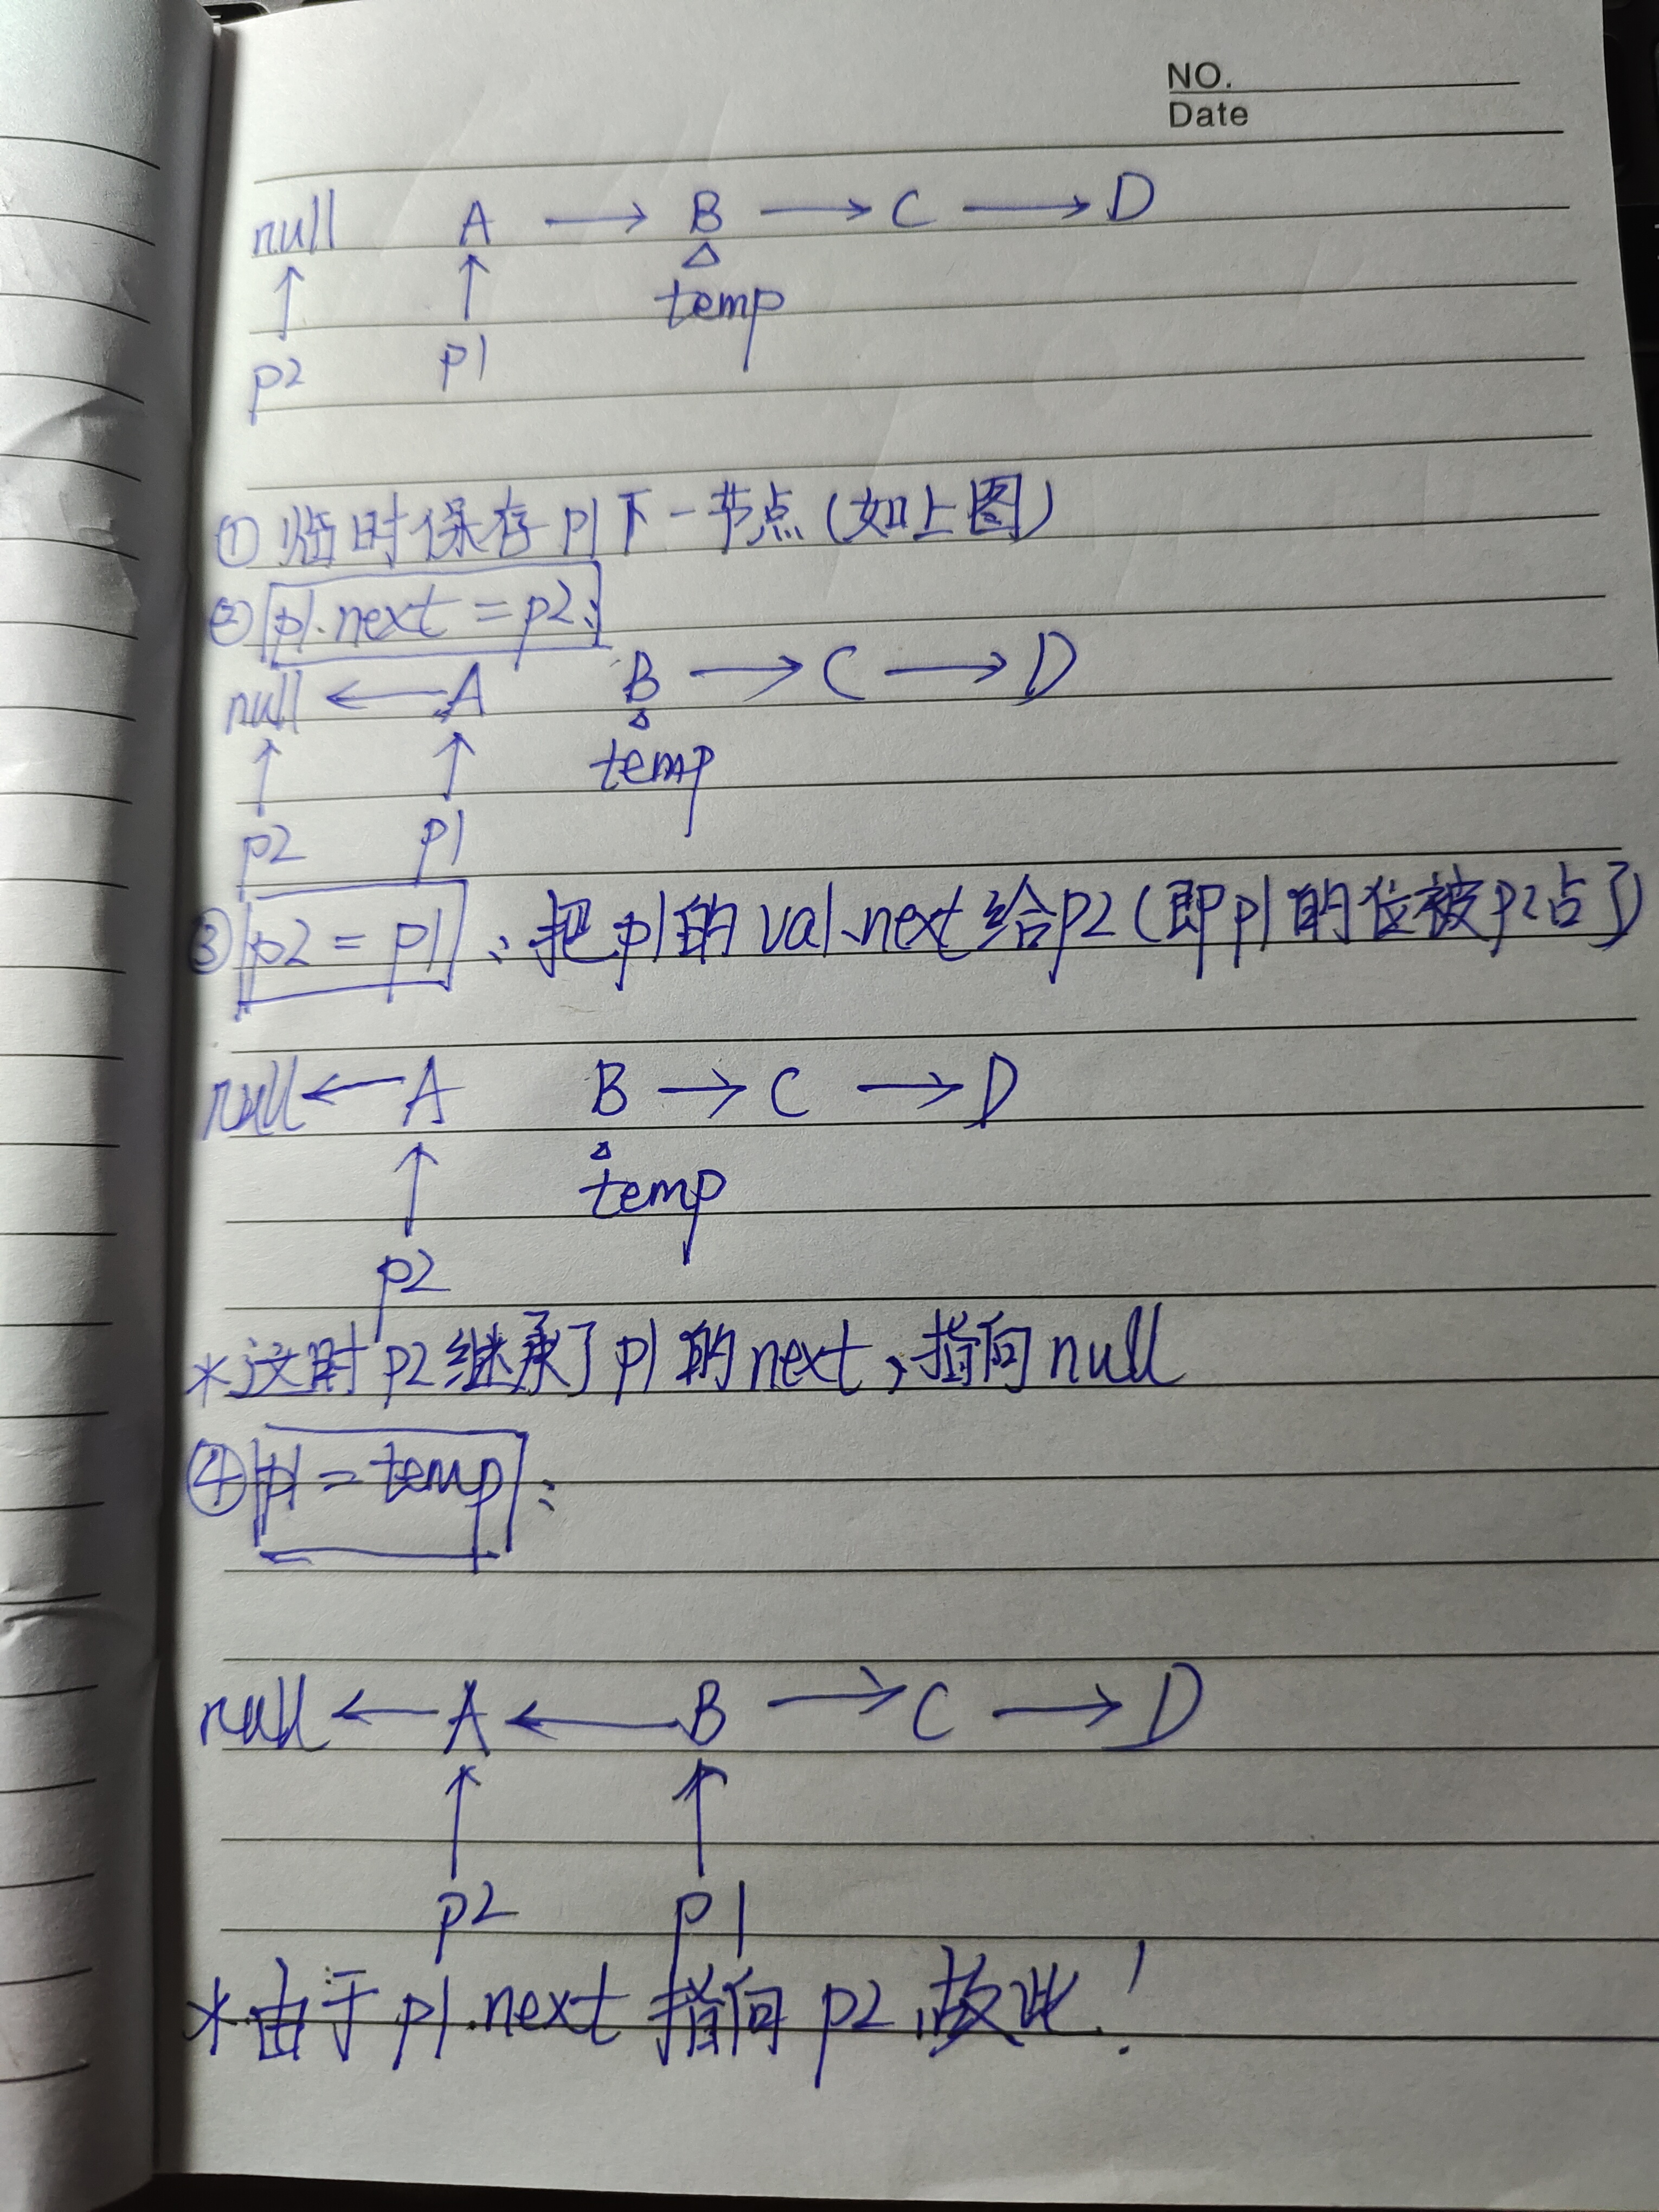 NO.
Date
null A → B → C → D
↑ ↑ △
p2 p1 temp
①临时保存p1下一节点(如上图)
②p1.next=p2:
null ← A B → C → D
↑ ↑ △
p2 p1 temp
③p2=p1:把p1的val.next给p2(即p1的位被p2占了)
null ← A B → C → D
↑ △
p2 temp
*这时p2继承了p1的next,指向null
④p1=temp:
null ← A ← B → C → D
↑ ↑
p2 p1
*由于p1.next指向p2,故此!